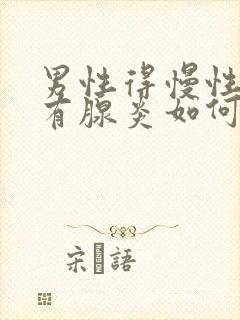 男性得慢性
有腺炎如何
宋語